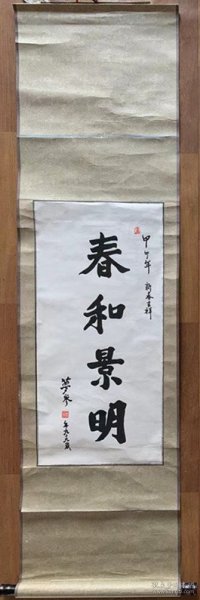 春和景明
甲午年 新春吉祥
年九十五歲